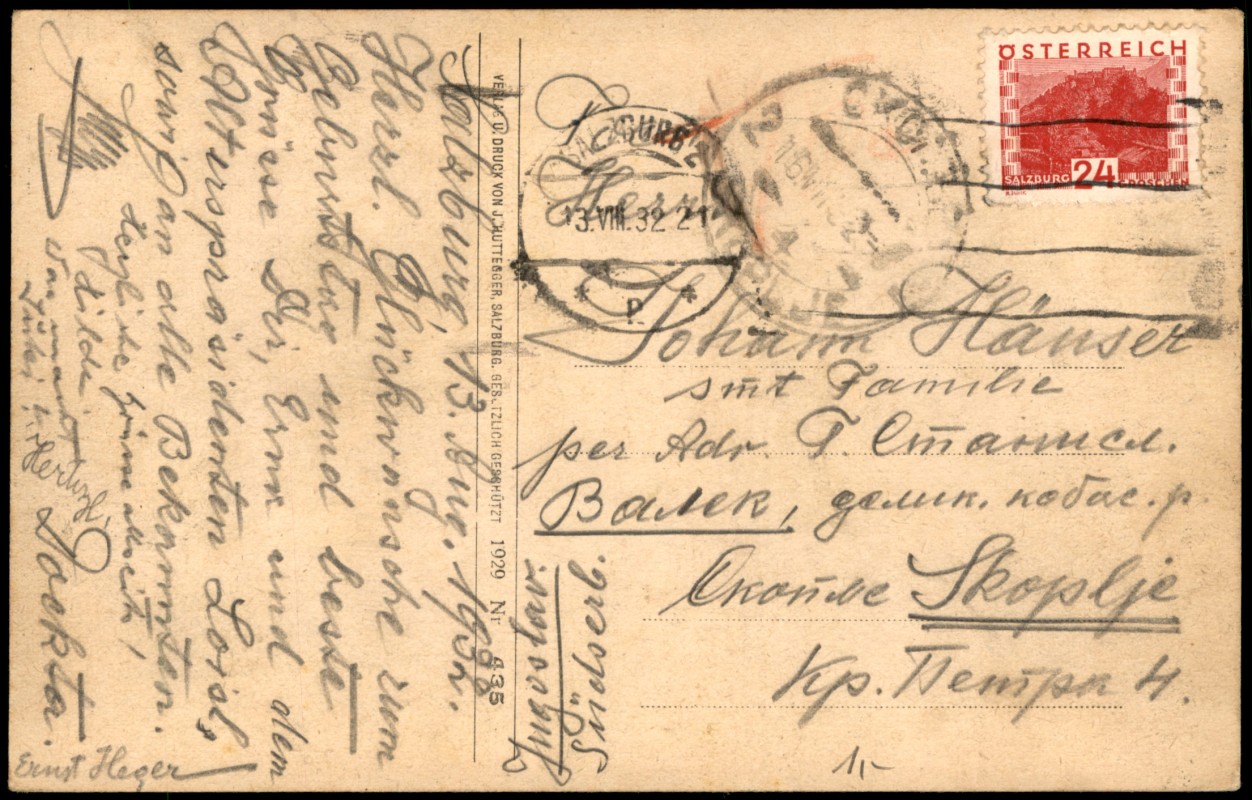 Salzburg, 13. Aug. 1932.
Herzl. Glückwünsche zum
Geburtstage und beste
Grüsse Dir, Erna und dem
Alterspräsidenten Loisl,
sowie an alle Bekannten.
Dockta.
Herzliche Grüsse allseits,
Hilde
Ernst Heger
VERLAG U. DRUCK VON J. HUTTEGGER, SALZBURG. GESETZLICH GESCHÜTZT 1929 Nr. 435
ÖSTERREICH
SALZBURG 24 GROSCHEN
SALZBURG 2
13.VIII.32 21
* P. *
Herrn
Johann Hänser
smt Familie
per Adr. Г. Станисл.
Валек, делик. кобас. р.
Скопље Skoplje
Кр. Петра 4.
Jugoslav.
Südserb.
1,-